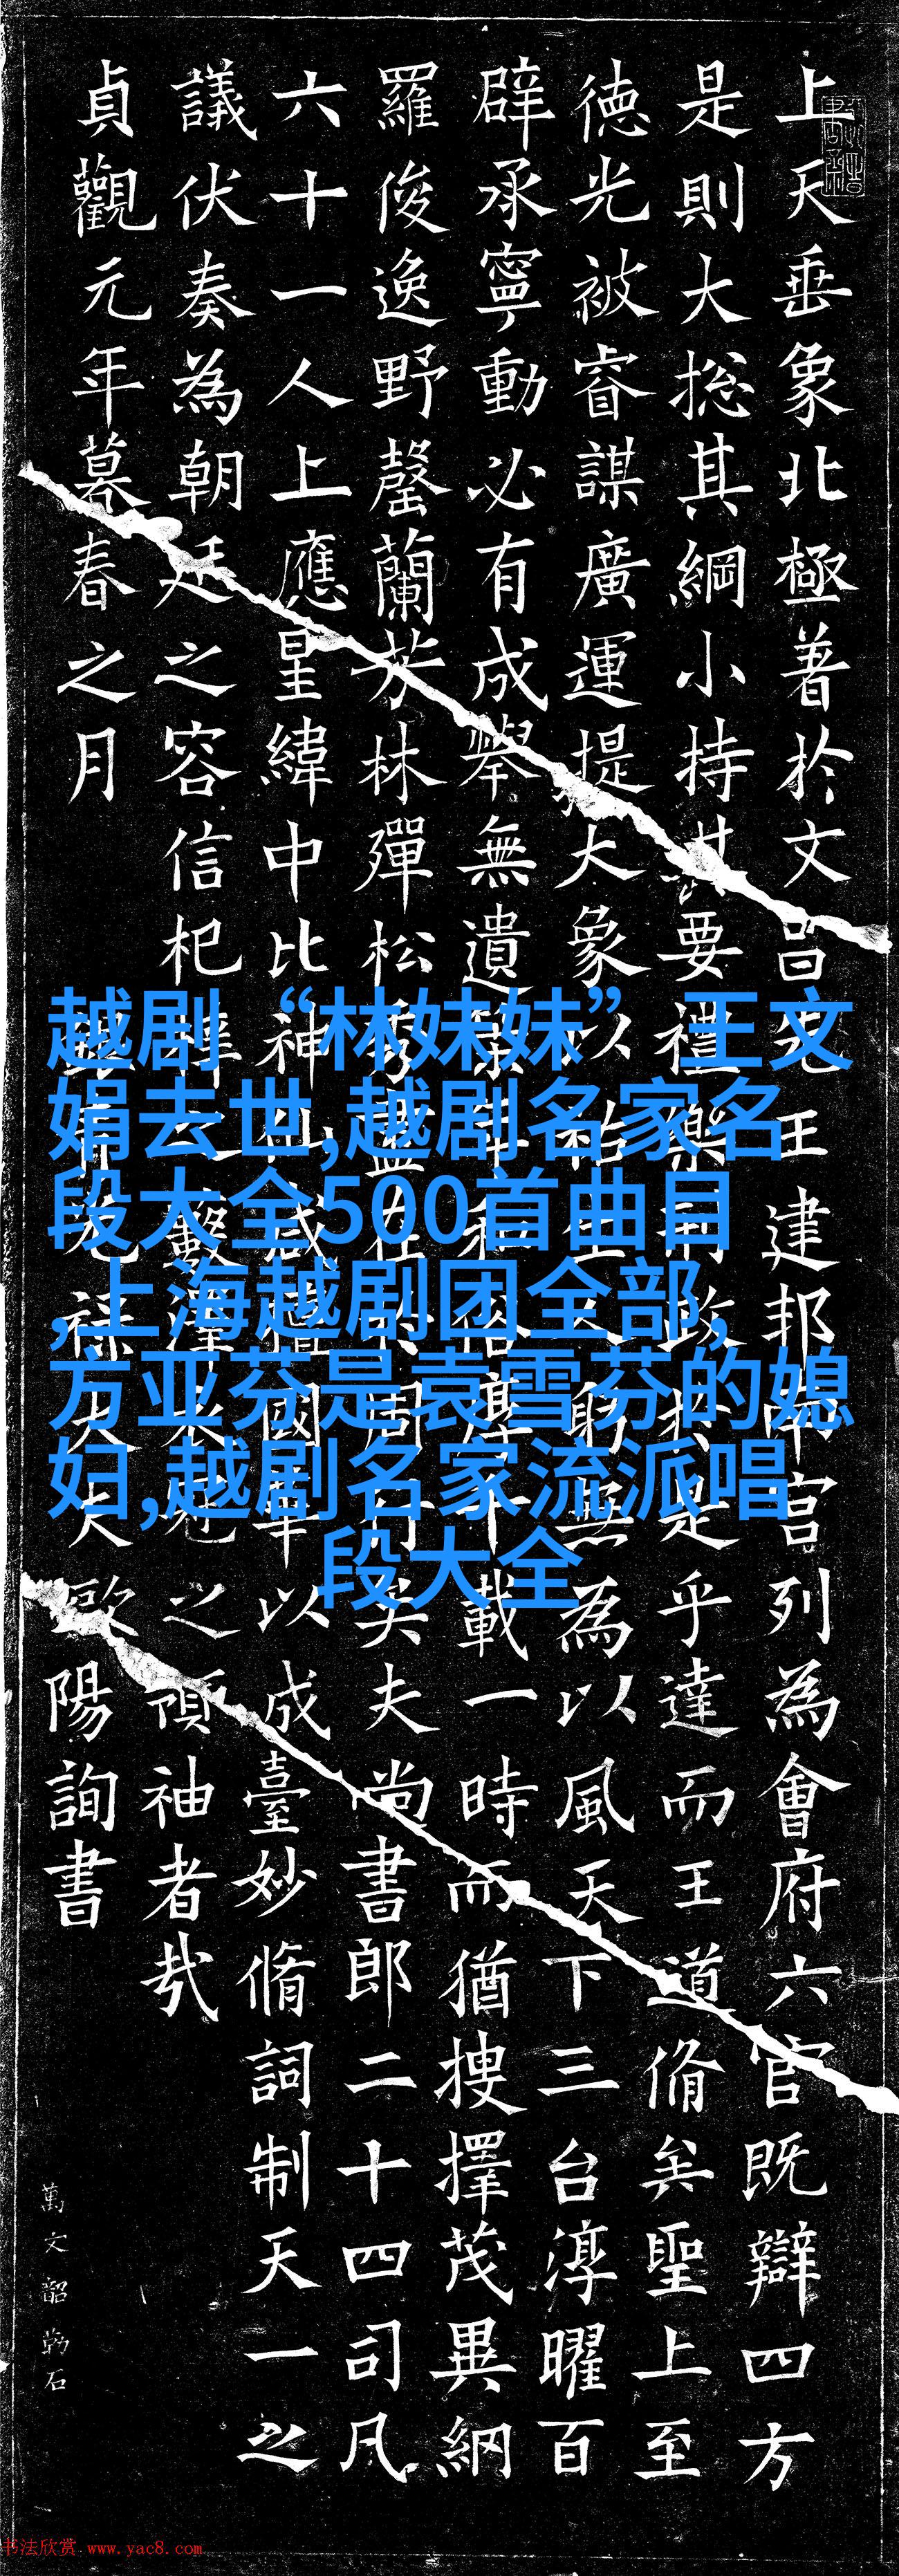 越剧 “林妹妹” 王文
娟去世,越剧名家名
段大全500首曲目
,上海越剧团全部,
方亚芬是袁雪芬的媳
妇,越剧名家流派唱
段大全
上天垂象北極著於文昌王建邦中宮列為會府六官既辯四方
是則大揔其綱小持其要禮樂政於是乎達而王道脩矣聖上至
德光被睿謀廣運提大象以祐躬無為以風天下三台淳曜百
辟承寧動必有成舉無遺俗厚千載一時而猶搜擇茂異網
羅俊逸野罄蘭芳林殫松盡在周行矣夫尚書郎二十四司凡
六十一人上應星緯中比神咸國華以成臺妙脩詞制天一之
議伏奏為朝廷之容信杞梓藪澤衣冠之領袖者哉
貞觀元年暮春之月光祿大夫歐陽詢書
萬文韶勒石
书法欣赏 www.yac8.com